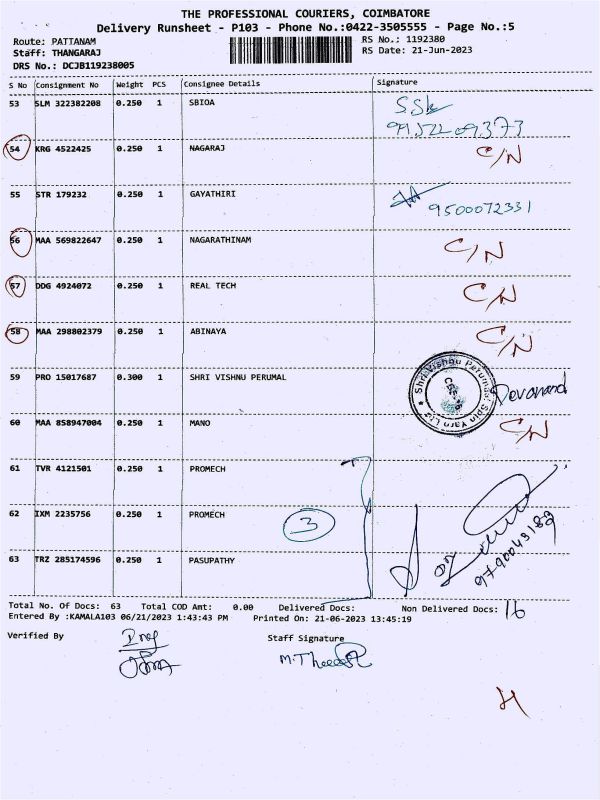 THE PROFESSIONAL COURIERS, COIMBATORE
Delivery Runsheet - P103 - Phone No.:0422-3505555 - Page No.:5
Route: PATTANAM RS No.: 1192380
Staff: THANGARAJ RS Date: 21-Jun-2023
DRS No.: DCJB119238005
S No Consignment No Weight PCS Consignee Details Signature
53 SLM 322382208 0.250 1 SBIOA
54 KRG 4522425 0.250 1 NAGARAJ C/N
55 STR 179232 0.250 1 GAYATHIRI 9500072331
56 MAA 569822647 0.250 1 NAGARATHINAM C/N
57 DDG 4924072 0.250 1 REAL TECH C/N
58 MAA 298802379 0.250 1 ABINAYA C/N
59 PRO 15017687 0.300 1 SHRI VISHNU PERUMAL Shri Vishnu Perumal Spin Yarn Devanand
60 MAA 858947004 0.250 1 MANO C/N
61 TVR 4121501 0.250 1 PROMECH
62 IXM 2235756 0.250 1 PROMECH 3
63 TRZ 285174596 0.250 1 PASUPATHY
Total No. Of Docs: 63 Total COD Amt: 0.00 Delivered Docs: Non Delivered Docs: 16
Entered By :KAMALA103 06/21/2023 1:43:43 PM Printed On: 21-06-2023 13:45:19
Verified By Staff Signature